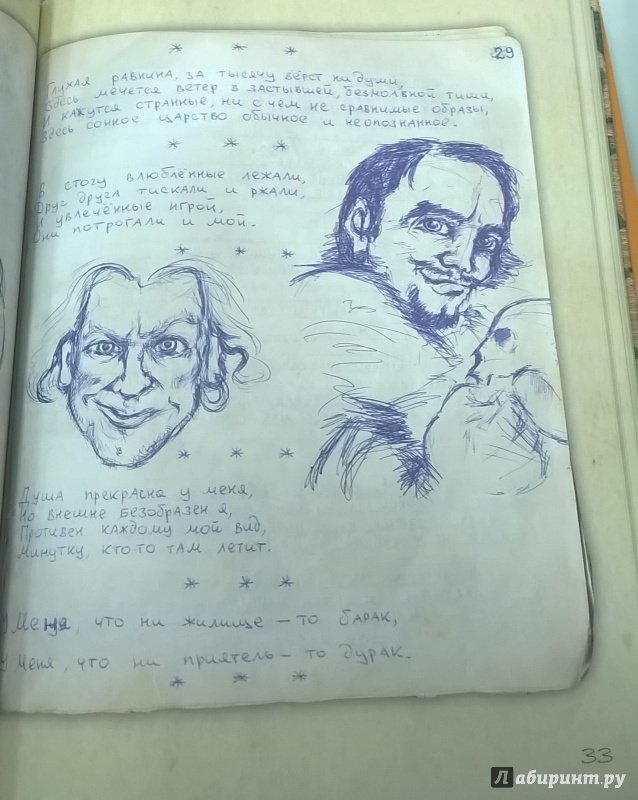 * * *
29
Глухая равнина, за тысячу вёрст ни души,
Здесь мечется ветер в застывшей, безмолвной тиши,
И кажутся странные, ни с чем не сравнимые образы,
Здесь сонное царство обычное и неопознанное.
* * *
В стогу влюблённые лежали,
Друг друга тискали и ржали,
И увлечённые игрой,
Они потрогали и мой.
* * *
* * *
Душа прекрасна у меня,
Но внешне безобразен я,
Противен каждому мой вид,
Минутку, кто-то там летит.
* * *
У меня, что ни жилище – то барак,
У меня, что ни приятель – то дурак.
* * *
33
Лабиринт.ру